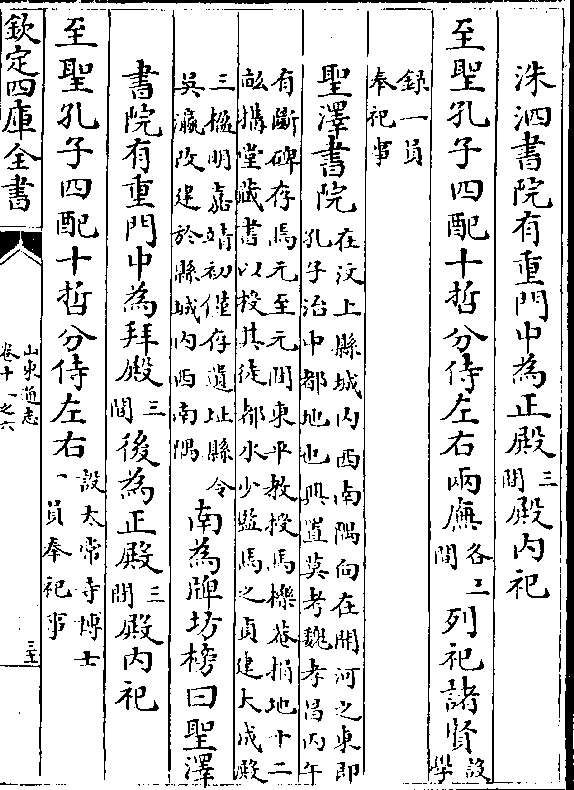 洙泗書院有重門中為正殿三間殿内祀
至聖孔子四配十哲分侍左右兩廡各三間列祀諸賢設學
録一員奉祀事
聖澤書院在汶上縣城内西南隅向在開河之東即孔子治中都地也興置莫考魏孝昌丙午
有斷碑存焉元至元間東平教授馬櫟菴捐地十二畝搆堂藏書以授其徒都水少監馬之貞建大成殿
三楹明嘉靖初僅存遺址縣令吳瀛改建於縣城内西南隅南為牌坊榜曰聖澤
書院有重門中為拜殿三間後為正殿三間殿内祀
至聖孔子四配十哲分侍左右設太常寺博士一員奉祀事
欽定四庫全書
山東通志
卷十一之六